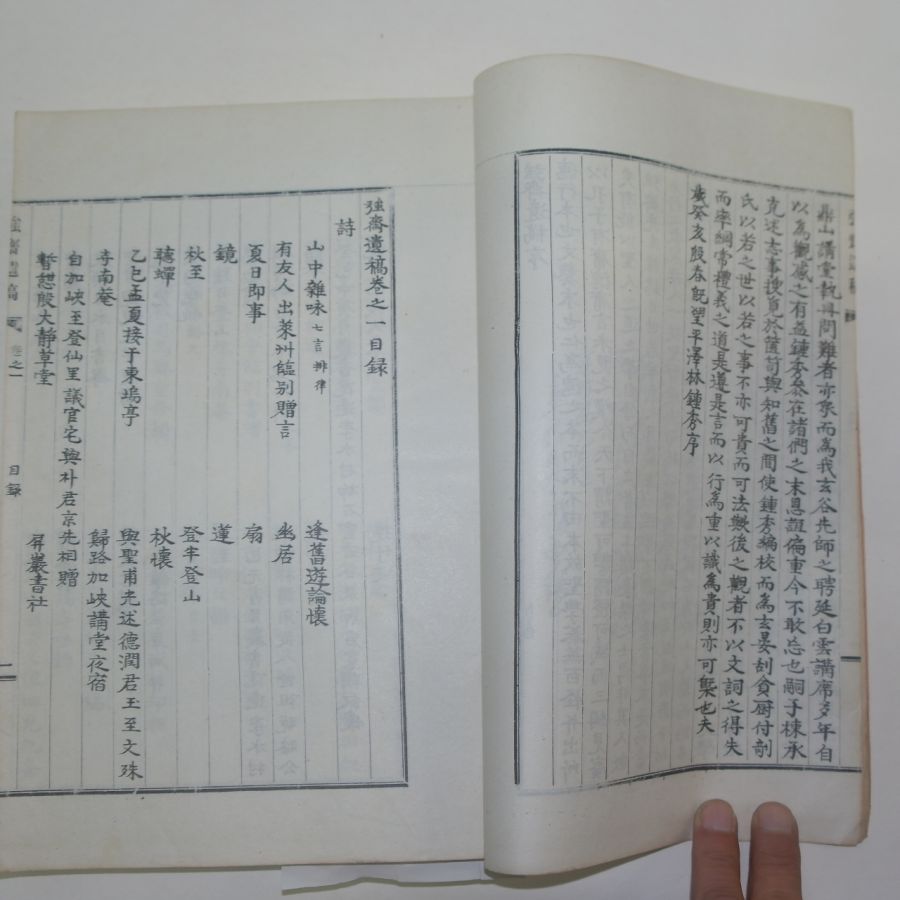 鼎山講堂執冊問難者亦衆而爲我玄谷先師之聘延白雲講席多年自
以爲觀感之有益鍾秀參在諸們之末恩誼偏重今不敢忘也嗣子棟承
克述志事搜覓於篋笥與知舊之間使鍾秀編校而爲玄晏刮貪厨付剞
氏以若之世以若之事不亦可貴而可法歟後之觀者不以文詞之得失
而率綱常禮義之道是遵是言而以行爲重以識爲貴則亦可槩也夫
歲癸亥殷春旣望平澤林鍾秀序
強齋遺稿卷之一目録
詩
山中雜咏 七言排律
逢舊遊論懷
有友人出萊州臨別贈言
幽居
夏日即事
扇
鏡
蓮
秋至
登牢登山
聽蟬
秋懷
乙巳孟夏接于東塢亭
與聖甫光述德潤君玉至文殊
寺南菴
歸路加峽講堂夜宿
自加峽至登仙里議官宅與朴君京先相贈
暫憩殷大靜草堂
屏巖書社
強齋遺稿
卷之一
目録